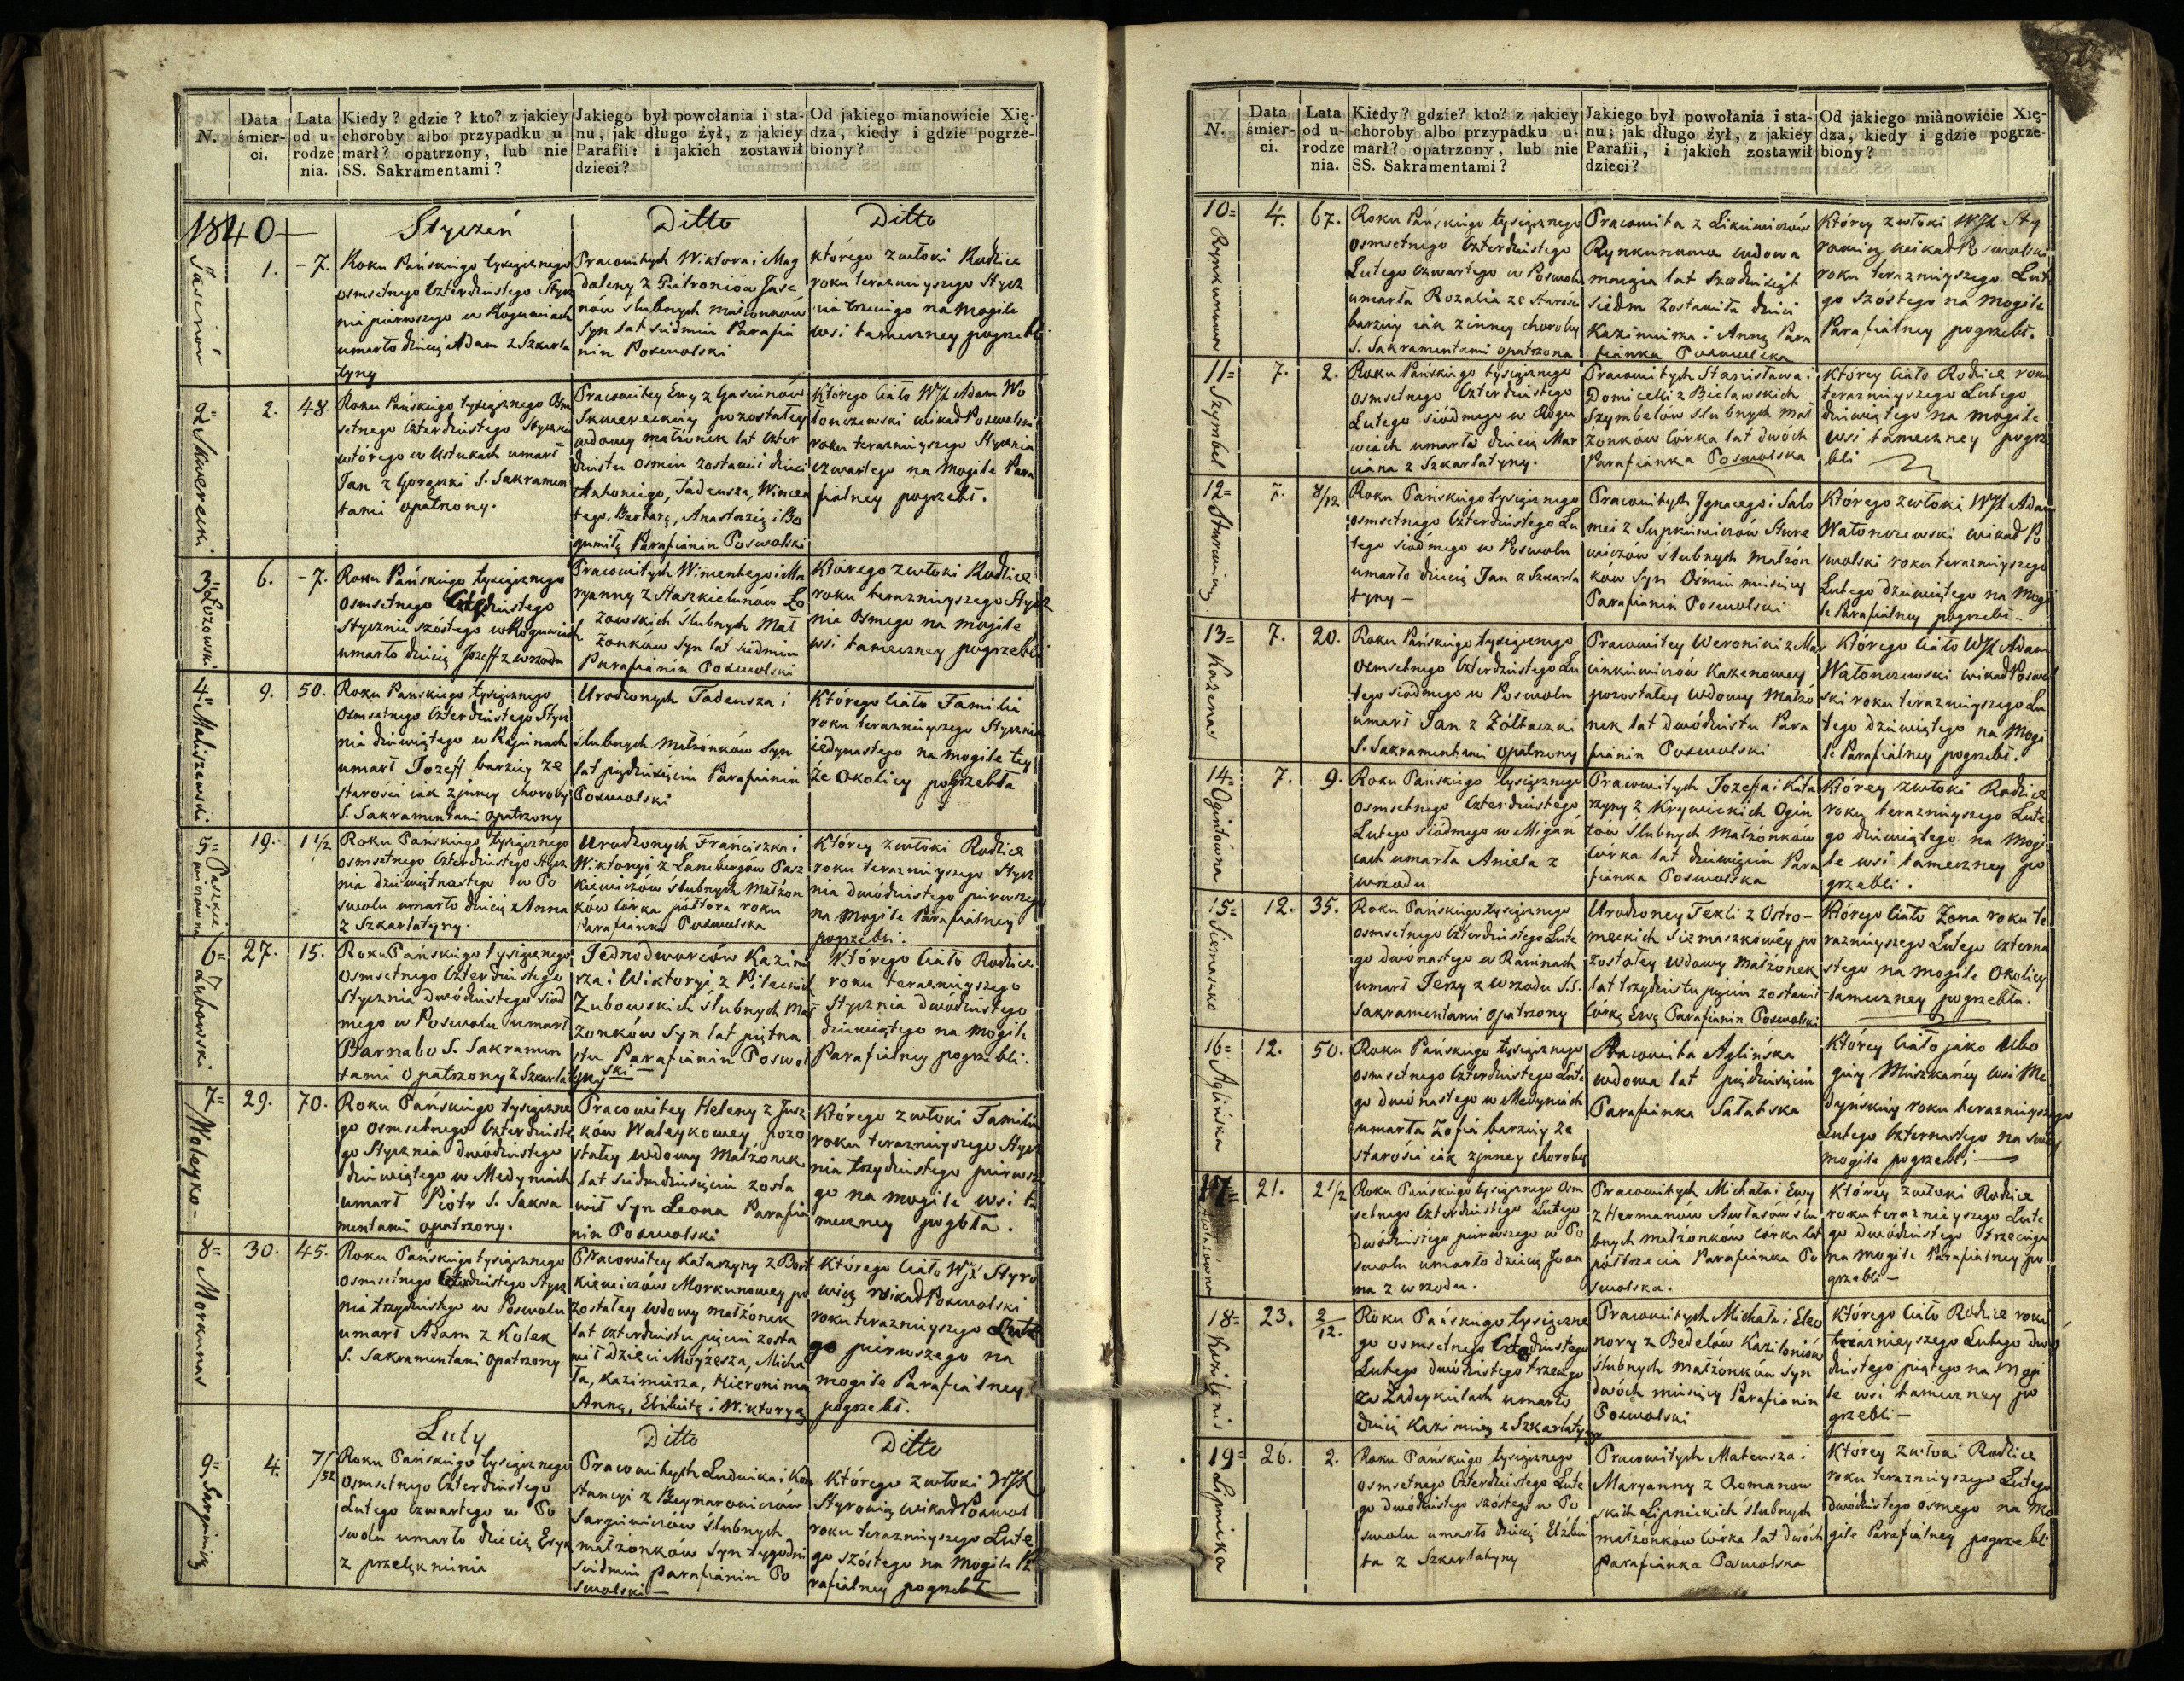 N.
Data śmierci.
Lata od urodzenia.
Kiedy? gdzie? kto? z jakiey
choroby albo przypadku u-
marł? opatrzony, lub nie
SS. Sakramentami?
Jakiego był powołania i sta-
nu, jak długo żył, z jakiey
Parafii: i jakich zostawił
dzieci?
Od jakiego mianowicie Xię-
dza, kiedy i gdzie pogrze-
biony?
1840
Styczeń
Ditto
Ditto
1.
7.
Roku Pańskiego tysiącznego
osmsetnego czterdziestego Stycz
nia pierwszego w
umarło dziecię Adam z Szkarla
tyny
Pracowitych Wiktora i Mag
daleny z Jase
nów ślubnych małżonków
Syn lat siedmiu Parafia
nin Poswolski
którego zwłoki Rodzice
roku teraznieyszego Stycz
nia trzeciego na mogile
wsi tameczney pogrzebli
2
Skwerecki
2.
48.
Roku Pańskiego tysiącznego Osm
setnego Czterdziestego Stycznia
wtórego w Ustukach umarł
Jan z Gorączki S. Sakramen
tami opatrzony.
Pracowitey Ewy z
pozostałey
wdowy małżonek lat czter
dziestu ośmiu zostawił dzieci
Antoniego, Tadeusza, Wincen
tego, Barbarę, Anastazią i Bo
gumiłę Parafianin Poswolski
Którego Ciało WJX Adam Wa
tonczewski wikary Poswolski
roku teraznieyszego Stycznia
czwartego na mogile Para
fialney pogrzebł.
3
Łozowski
6.
7.
Roku Pańskiego tysiącznego
osmsetnego Czterdziestego
Stycznia szóstego w
umarło dziecię Jozeff z wrzodu
Pracowitych Wincentego i Ma
ryanny z Staszkielunów Ło
zowskich ślubnych Mał
żonków Syn lat siedmiu
Parafianin Poswolski
Którego zwłoki Rodzice
roku teraznieyszego Stycz
nia Osmego na mogile
wsi tameczney pogrzebli
4
Maliszewski
9.
50.
Roku Pańskiego tysiącznego
osmsetnego Czterdziestego Stycz
nia dziewiątego w Raginach
umarł Jozeff barziey ze
starości iak z jnney choroby
S. Sakramentami opatrzony
Urodzonych Tadeusza i
ślubnych Małżonków Syn
lat pięćdziesięciu Parafianin
Poswolski
Którego Ciało Familia
roku teraznieyszego Stycznia
jedynastego na mogile tey
że Okolicy pogrzebła
5
19.
1 1/2
Roku Pańskiego tysiącznego
osmsetnego Czterdziestego Stycz
nia dziewiętnastego w Po
swolu umarło dziecię Anna
z Szkarlatyny.
Urodzonych Franciszka i
Wiktoryi z Lamburgów Pasz
kiewiczów ślubnych Małżon
ków Córka półtora roku
Parafianka Poswolska
Którey zwłoki Rodzice
roku teraznieyszego Stycz
nia dwódziestego pierwszego
na mogile Parafialney
pogrzebli.
6
Zubowski
27.
15.
Roku Pańskiego tysiącznego
Osmsetnego Czterdziestego
Stycznia dwódziestego siód
mego w Poswolu umarł
Barnabo S. Sakramen
tami opatrzony z Szkarlatyny
Jednodworców Kazimi
rza i Wiktoryi z Pileckich
Zubowskich ślubnych Mał
żonków Syn lat piętna
stu Parafianin Poswol
ski
Którego Ciało Rodzice
roku teraznieyszego
Stycznia dwódziestego
dziewiątego na mogile
Parafialney pogrzebli.
7
Woleyko
29.
70.
Roku Pańskiego tysiączne
go osmsetnego Czterdzieste
go Stycznia dwódziestego
dziewiątego w Medyniach
umarł Piotr S. Sakra
mentami opatrzony.
Pracowitey Heleny z Jusz
ków Waleykowey pozo
stałey wdowy Małżonek
lat siedmdziesięciu zosta
wił Syn Leona Parafia
nin Poswolski
Którego zwłoki Familia
roku teraznieyszego Stycz
nia trzydziestego pierwsze
go na mogile wsi ta
meczney pogbła.
8
Morkunas
30.
45.
Roku Pańskiego tysiącznego
Osmsetnego Czterdziestego Stycz
nia trzydziestego w Poswolu
umarł Adam z Kolek
S. Sakramentami opatrzony
Pracowitey Katarzyny z Bort
kiewiczów Morkunowey po
zostałey wdowy małżonek
lat czterdziestu pięciu zosta
wił dzieci Moyżesza, Micha
ła, Kazimierza, Hieronima
Annę, Elżbietę i Wiktoryą
Którego Ciało WJX Styro
wicz wikary Poswolski
roku teraznieyszego Lute
go pierwszego na
mogile Parafialney
pogrzebł.
Luty
Ditto
Ditto
9
4.
7/52
Roku Pańskiego tysiącznego
osmsetnego Czterdziestego
Lutego czwartego w Po
swolu umarło dziecię Eryk
z przelęknienia
Pracowitych Ludwika i Kon
stancyi z Beynarowiczów
Sargiewiczów ślubnych
małżonków Syn tygodni
siedmiu parafianin Po
swolski
Którego zwłoki WJX
Styrowicz wikary Poswol
roku teraznieyszego Lute
go szóstego na Mogile Pa
rafialney pogrzebł
N.
Data śmierci.
Lata od urodzenia.
Kiedy? gdzie? kto? z jakiey
choroby albo przypadku u-
marł? opatrzony, lub nie
SS. Sakramentami?
Jakiego był powołania i sta-
nu; jak długo żył, z jakiey
Parafii, i jakich zostawił
dzieci?
Od jakiego mianowicie Xię-
dza, kiedy i gdzie pogrze-
biony?
10
Rynkunowa
4.
67.
Roku Pańskiego tysiącznego
osmsetnego Czterdziestego
Lutego Czwartego w Poswolu
umarła Rozalia ze starości
barziey iak z inney choroby
S. Sakramentami opatrzona
Pracowita z Likiewiczów
Rynkunowa wdowa
maiąca lat sześćdziesiąt
siedm zostawiła dzieci
Kazimierza i Annę Para
fianka Poswolska
Którey zwłoki WJX Sty
rowicz wikary Poswolski
roku teraznieyszego Lute
go szóstego na mogile
Parafialney pogrzebł.
11
Szymbel
7.
2.
Roku Pańskiego tysiącznego
osmsetnego Czterdziestego
Lutego siódmego w Rogu
wiach umarło dziecię Mar
ciana z Szkarlatyny.
Pracowitych Stanisława i
Domicelli z Bielawskich
Szymbelow ślubnych mał
żonków Córka lat dwóch
Parafianka Poswolska
Którey Ciało Rodzice roku
teraznieyszego Lutego
dziewiątego na mogile
wsi tameczney pogrze
bli
12
7.
8/12
Roku Pańskiego tysiącznego
osmsetnego Czterdziestego Lu
tego siódmego w Poswolu
umarło dziecię Jan z Szkarla
tyny
Pracowitych Jgnacego i Salo
mei z Supkiewiczów Sture
wiczów ślubnych Małżon
ków Syn Ośmiu miesięcy
Parafianin Poswolski
Którego zwłoki WJX Adam
Watonczewski wikary Po
swolski roku teraznieyszego
Lutego dziewiątego na Mogi
le Parafialney pogrzebł
13
Każenas
7.
20.
Roku Pańskiego tysiącznego
Osmsetnego Czterdziestego Lu
tego siódmego w Poswolu
umarł Jan z Żółtaczki
S. Sakramentami opatrzony
Pracowitey Weroniki z Mar
cinkiewiczów Każenowey
pozostałey wdowy Małżo
nek lat dwódziestu Para
fianin Poswolski
Którego Ciało WJX Adam
Watonczewski wikary Poswol
ski roku teraznieyszego Lu
tego dziewiątego na Mogi
le Parafialney pogrzebł.
14
Ogintówna
7.
9.
Roku Pańskiego tysiącznego
osmsetnego Czterdziestego
Lutego siódmego w Migań
cach umarła Aniela z
wrzodu
Pracowitych Jozefa i Kata
rzyny z Krywickich Ogin
tow ślubnych Małżonków
Córka lat dziewięciu Para
fianka Poswolska
Którey zwłoki Rodzice
roku teraznieyszego Lute
go dziewiątego na Mogi
le wsi tameczney po
grzebli.
15
Siemaszko
12.
35.
Roku Pańskiego tysiącznego
osmsetnego Czterdziestego Lute
go dwónastego w Rawinach
umarł Jerzy z wrzodu S.S.
Sakramentami opatrzony
Urodzoney Tekli z Ostro-
meckich Siemaszkowey po
zostałey wdowy Małżonek
lat trzydziestu pięciu zostawił
Córkę Ewę Parafianin Poswolski
Którego Ciało Żona roku te
raznieyszego Lutego Czterna
stego na mogile Okolicy
tameczney pogrzebła.
16
Aglińska
12.
50.
Roku Pańskiego tysiącznego
osmsetnego Czterdziestego Lute
go dwónastego w Medyniach
umarła Zofia barziey ze
starości iak z jnney choroby
Pracowita Aglińska
wdowa lat pięćdziesięciu
Parafianka Sałatska
Którey Ciało jako Ubo
giey Mieszkańcy wsi Me
dyńskiey roku teraznieyszego
Lutego Czternastego na swey
mogile pogrzebli
17
21.
2 1/2
Roku Pańskiego tysiącznego Osm
setnego Czterdziestego Lutego
dwódziestego pierwszego w Po
swolu umarło dziecię Joan
na z wrzodu.
Pracowitych Michała i Ewy
z Hermanow Awłasow ślu
bnych małżonków Córka lat
półtrzecia Parafianka Po
swolska.
Którey zwłoki Rodzice
roku teraznieyszego Lute
go dwódziestego trzeciego
na Mogile Parafialney po
grzebli
18
23.
2/12.
Roku Pańskiego tysiączne
go osmsetnego Czterdziestego
Lutego dwódziestego trzeciego
w Żadeykutach umarło
dziecię Kazimierz z Szkarlatyny
Pracowitych Michała i Eleo
nory z Bedelów Kaziloniow
ślubnych Małżonków Syn
dwóch miesięcy Parafianin
Poswolski
Którego Ciało Rodzice roku
teraznieyszego Lutego dwó
dziestego piątego na Mogi
le wsi tameczney po
grzebli
19
Lipnicka
26.
2.
Roku Pańskiego tysiącznego
osmsetnego Czterdziestego Lute
go dwódziestego szóstego w Po
swolu umarło dziecię Elżbie
ta z Szkarlatyny
Pracowitych Mateusza i
Maryanny z Romanow
skich Lipnickich ślubnych
małżonków Córka lat dwóch
Parafianka Poswolska
Którey zwłoki Rodzice
roku teraznieyszego Lutego
dwódziestego ósmego na Mo
gile Parafialney pogrzebli